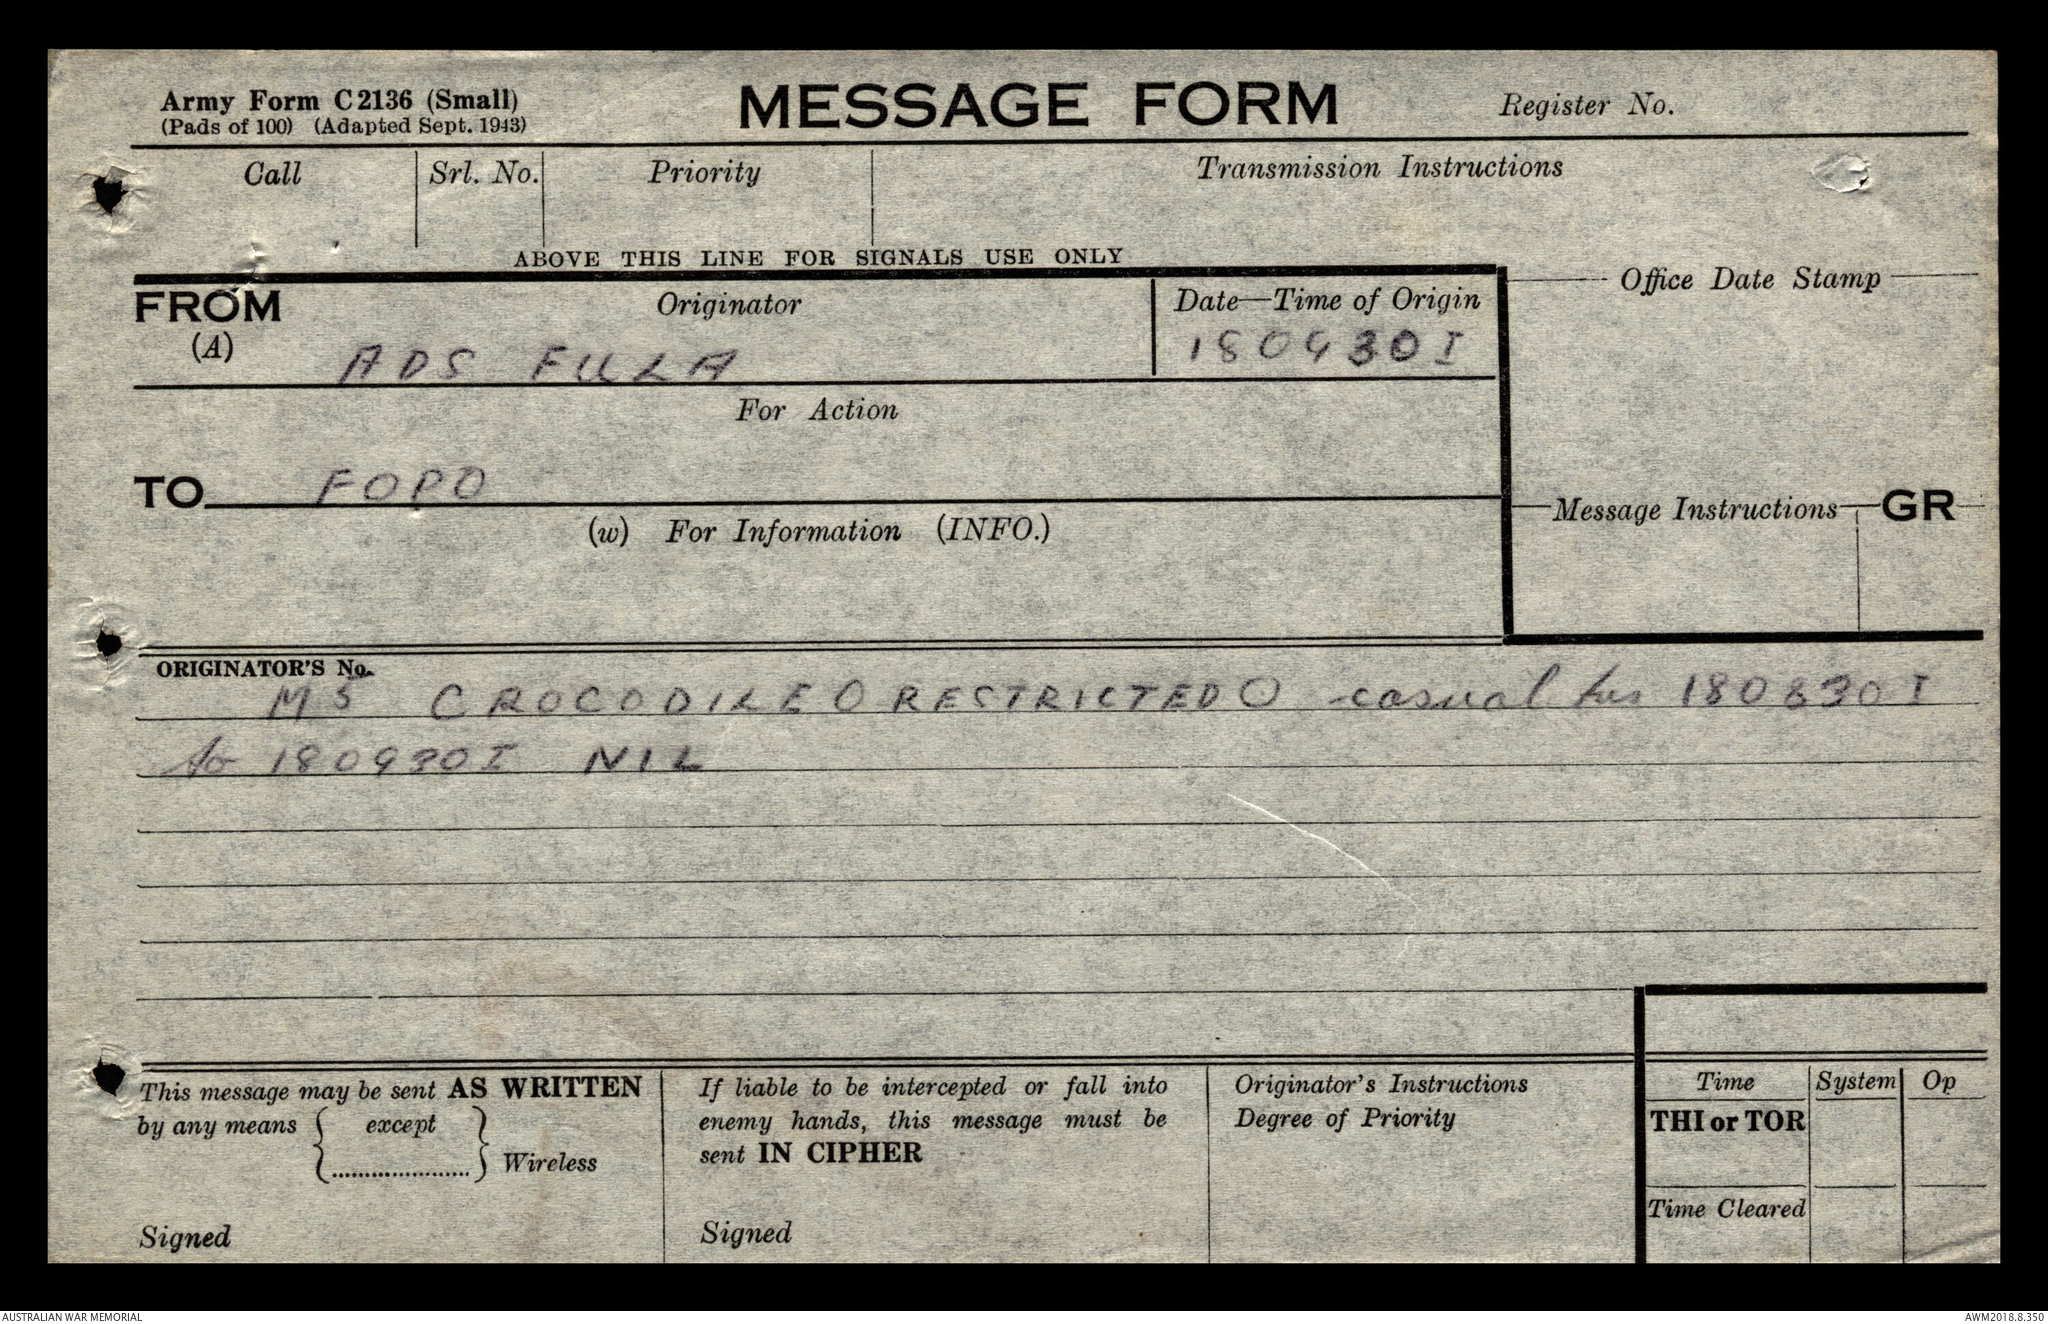 Army Form C2136 (Small)
(Pads of 100) (Adapted Sept. 1943)
MESSAGE FORM
Register No.
Call
Srl. No.
Priority
Transmission Instructions
ABOVE THIS LINE FOR SIGNALS USE ONLY
FROM
(A)
Originator
ADS FULA
Date—Time of Origin
180930I
Office Date Stamp
For Action
TO
FOPO
(w) For Information (INFO.)
Message Instructions
GR
ORIGINATOR'S No.
M5 CROCODILE O RESTRICTED O casual for 180830I
to 180930I NIL
This message may be sent AS WRITTEN
by any means { except
.....................} Wireless
Signed
If liable to be intercepted or fall into
enemy hands, this message must be
sent IN CIPHER
Signed
Originator's Instructions
Degree of Priority
Time
System
Op
THI or TOR
Time Cleared
AUSTRALIAN WAR MEMORIAL
AWM2018.8.350